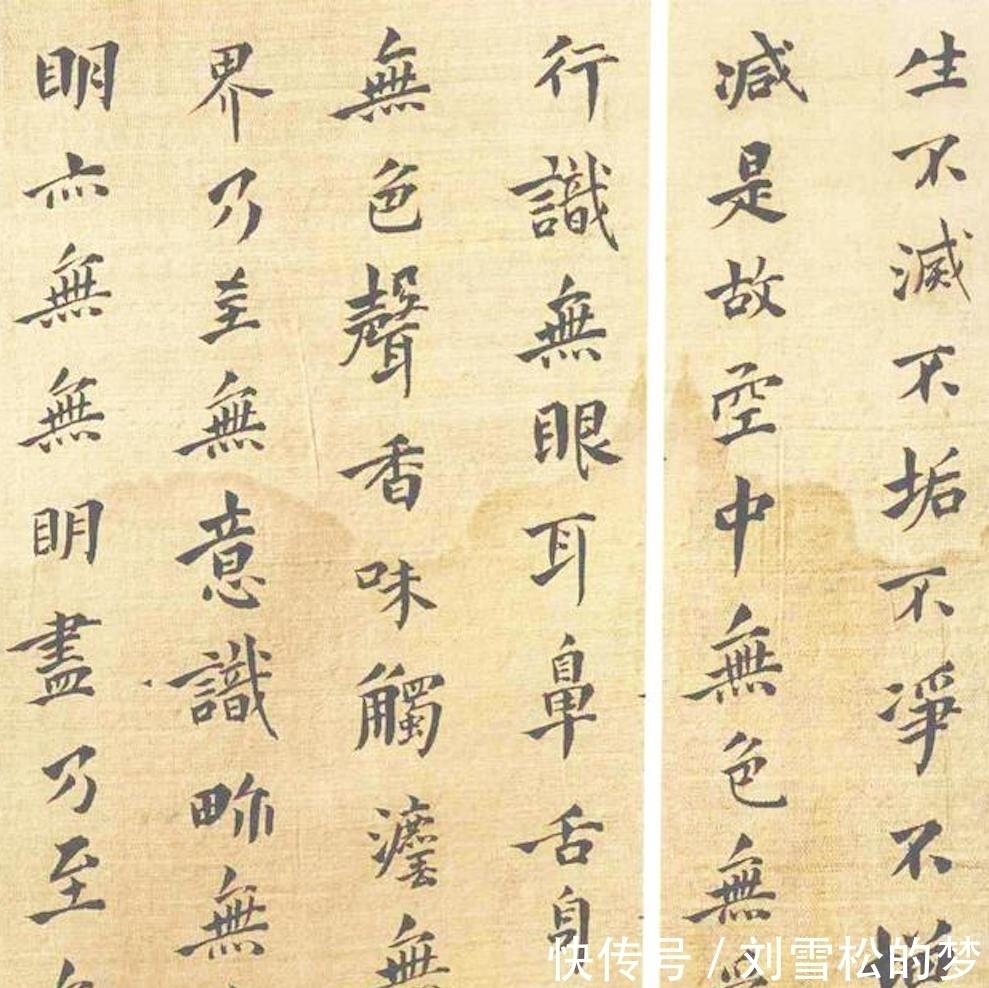 生不滅不垢不淨不
減是故空中無色無
行識無眼耳鼻舌身
無色聲香味觸灋無
界乃至無意識畍無
明亦無無明盡乃至
快传号 / 刘雪松的梦